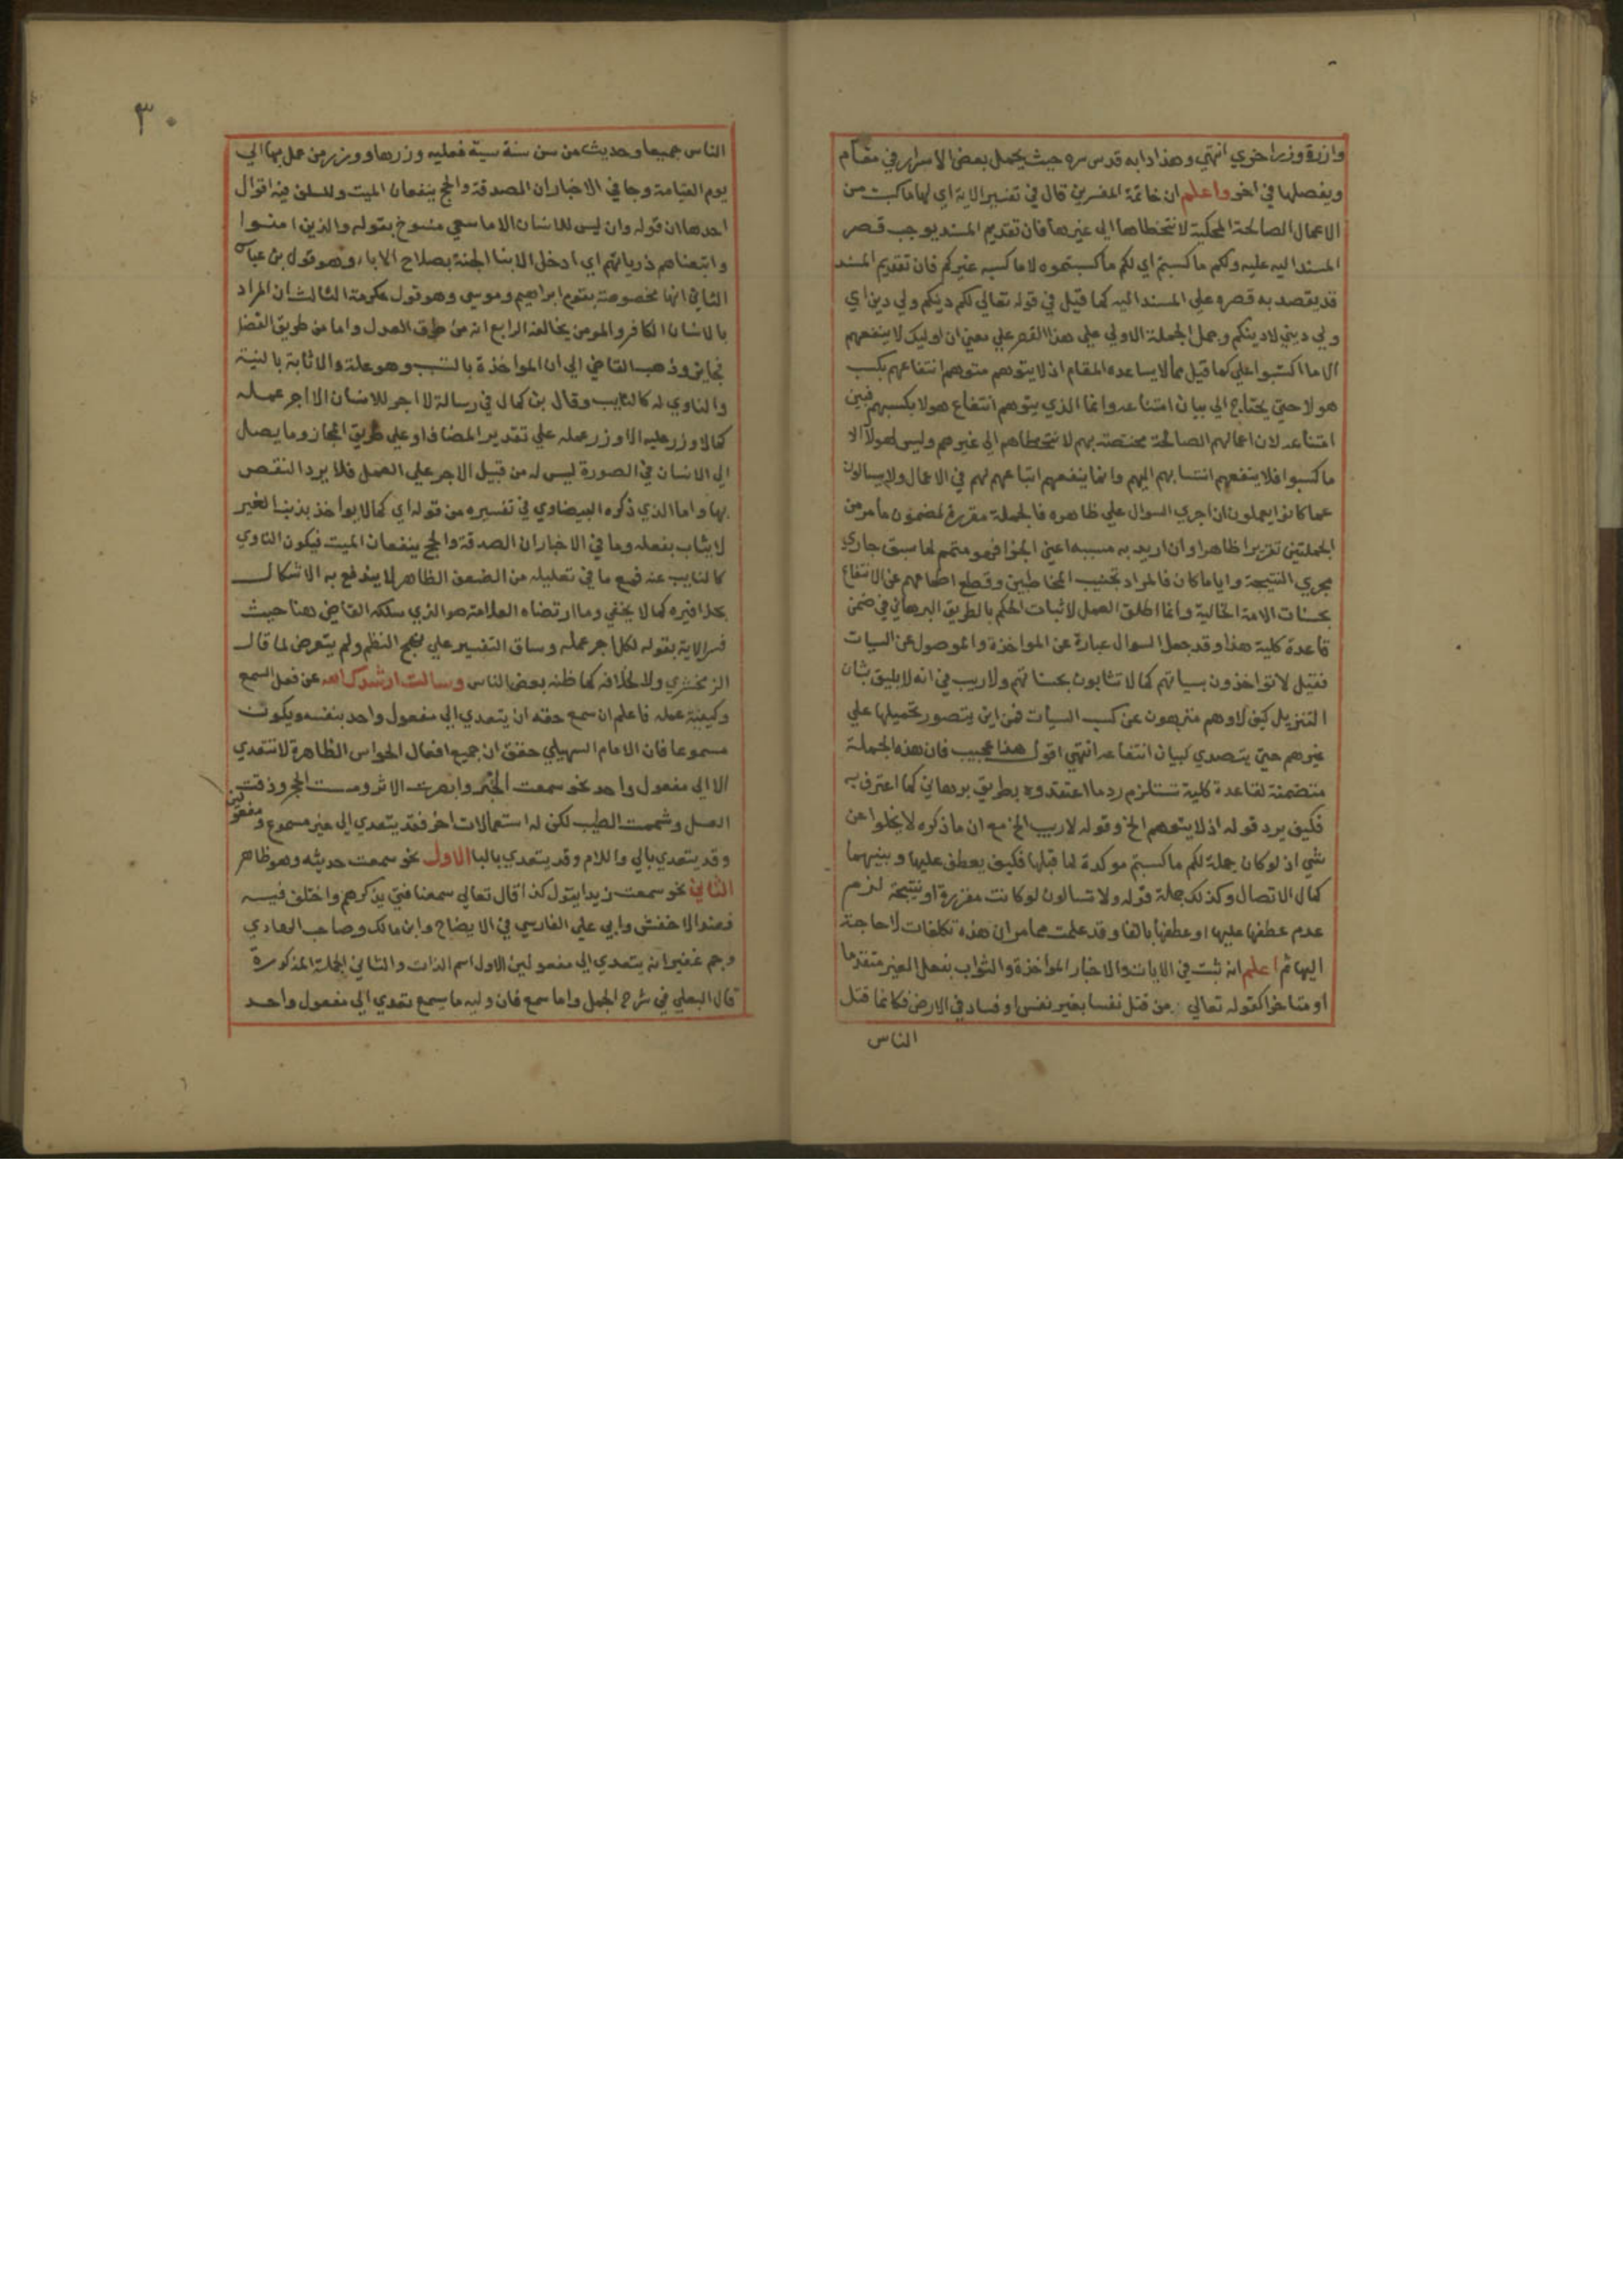 وازرة وزر اخري انتهي وهذا دابه قدس سره حيث يحمل بعض الاسرار في مقام
ويفصلها في اخر واعلم ان خاتمة المفسرين قال في تفسير الاية اي لها ما كسبت من
الاعمال الصالحة المحكية لا تتخطاها الي غيرها فان تقديم المسند يوجب قصر
المسند اليه عليه ولكم ما كسبتم اي لكم ما كسبتموه لا ما كسبه غيركم فان تقديم المسند
قد يقصد به قصره علي المسند اليه كما قيل في قوله تعالي لكم دينكم ولي دين اي
ولي ديني لا دينكم وحمل الجملة الاولي علي هذا القصر علي معني ان اوليك لا ينفعهم
الا ما اكتسبوا علي كما قيل مما لا يساعده المقام اذ لا يتوهم متوهم انتفاعهم بكسب
هولا حتي يحتاج الي بيان امتناعه وانما الذي يتوهم انتفاع هولا بكسبهم فبين
امتناعه لان اعمالهم الصالحة مختصة بهم لا تتخطاهم الي غيرهم وليس لهولا الا
ما كسبوا فلا ينفعهم انتسابهم اليهم وانما ينفعهم اتباعهم لهم في الاعمال ولا يسالون
عما كانوا يعملون ان اجري السوال علي ظاهره فالجملة مقررة لمضمون ما مر من
الجملتين تقريرا ظاهرا وان اريد به مسببه اعني الجزا فهو متمم لما سبق جاري
مجري النتيجة وايا ما كان فالمراد تخييب المخاطبين وقطع اطماعهم عن الانتفاع
بحسنات الامة الخالية وانما اطلق العمل لاثبات الحكم بالطريق البرهاني في ضمن
قاعدة كلية هذا وقد جعل السوال عبارة عن المواخذة والموصول عن السيات
فقيل لا تواخذون بسياتهم كما لا تثابون بحسناتهم ولا ريب في انه لا يليق بشان
التنزيل كيف لا وهم منزهون عن كسب السيات فمن اين يتصور تحميلها علي
غيرهم حتي يتصدي لبيان انتفاعه انتهي اقول هذا عجيب فان هذه الجملة
متضمنة لقاعدة كلية تستلزم رد ما اعتقدوه بطريق برهاني كما اعترف به
فكيف يرد قوله اذ لا يتوهم الخ وقوله لا ريب الخ مع ان ما ذكره لا يخلوا عن
شي اذ لو كان جملة لكم ما كسبتم موكدة لما قبلها فكيف يعطف عليها وبينهما
كمال الاتصال وكذلك جملة قوله ولا تسالون لو كانت مقررة او نتيجة لزم
عدم عطفها عليها او عطفها بالفا وقد علمت مما مر ان هذه تكلفات لا حاجة
اليها ثم اعلم انه ثبت في الايات والاخبار المواخذة والثواب بفعل الغير متقدما
او متاخرا كقوله تعالي من قتل نفسا بغير نفس او فساد في الارض فكانما قتل
الناس
٣٠
الناس جميعا وحديث من سن سنة سيئة فعليه وزرها ووزر من عمل بها الي
يوم القيامة وجا في الاخبار ان الصدقة والحج ينفعان الميت وللسلف فيه اقوال
احدها ان قوله وان ليس للانسان الا ما سعي منسوخ بقوله والذين امنوا
واتبعناهم ذرياتهم اي ادخل الابنا الجنة بصلاح الاباء وهو قول بن عباس
الثاني انها مخصوصة بقوم ابراهيم وموسي وهو قول عكرمة الثالث ان المراد
بالانسان الكافر والمومن يخالفه الرابع انه من طرق العدل واما من طريق الفضل
فجايز وذهب القاضي الي ان المواخذة بالتسبب وهو علة والاثابة بالنية
والناوي له كالنايب وقال بن كمال في رسالة لا اجر للانسان الا اجر عمله
كما لا وزر عليه الا وزر عمله علي تقدير المضاف او علي طريق المجاز وما يصل
الي الانسان في الصورة ليس له من قبيل الاجر علي العمل فلا يرد النقص
بها واما الذي ذكره البيضاوي في تفسيره من قوله اي كما لا يواخذ بذنب الغير
لا يثاب بفعله وما في الاخبار ان الصدقة والحج ينفعان الميت فيكون الناوي
كالنايب عنه فمع ما في تعليله من الضعف الظاهر لا يندفع به الاشكال
بحذافيره كما لا يخفي وما ارتضاه العلامة هو الذي سلكه القاضي هنا حيث
فسر الاية بقوله لكل اجر عمله وساق التفسير علي نهج النظم ولم يتعرض لما قال
الزمخشري ولا لخلافه كما ظنه بعض الناس وسالت ارشدك الله عن فعل السمع
وكيفية عمله فاعلم ان سمع حقه ان يتعدي الي مفعول واحد بنفسه ويكون
مسموعا فان الامام السهيلي حقق ان جميع افعال الحواس الظاهرة لا تتعدي
الا الي مفعول واحد نحو سمعت الخبر وابصرت الاثر ومست الحجر وذقت
العسل وشممت الطيب لكن له استعمالات اخر فقد يتعدي الي غير مسموع ومفعولين
وقد يتعدي بالي واللام وقد يتعدي بالبا الاول نحو سمعت حديثه وهو ظاهر
الثاني نحو سمعت زيدا يقول كذا قال تعالي سمعنا فتي يذكرهم واختلف فيه
فعند الاخفش وابي علي الفارسي في الايضاح وابن مالك وصاحب الهادي
وجم غفير انه يتعدي الي مفعولين الاول اسم الذات والثاني الجملة المذكورة
قال البعلي في شرح الجمل واما سمع فان وليه ما يسمع تعدي الي مفعول واحد